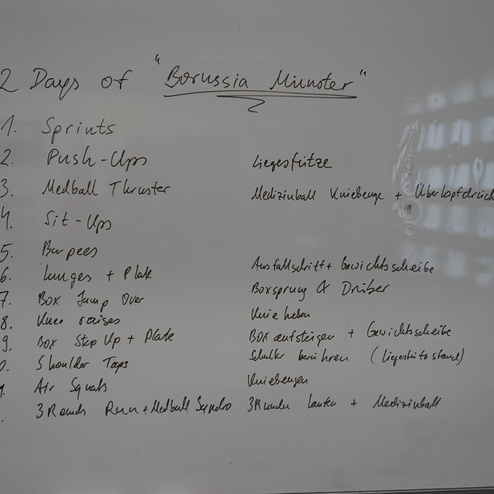 2 Days of "Borussia Münster"
1. Sprints
2. Push-Ups Liegestütze
3. Medball Thruster Medizinball Kniebeuge + Überkopfdrück
4. Sit-Ups
5. Burpees
6. Lunges + Plate Ausfallschritt + Gewichtsscheibe
7. Box Jump Over Boxsprung & Drüber
8. Knee raises Knie heben
9. Box Step Up + Plate Box aufsteigen + Gewichtscheibe
0. Shoulder Taps Schulter berühren (Liegestützstand)
Air Squats Kniebeugen
3 Runds Run + Medball Synchro 3 Runden Laufen + Medizinball